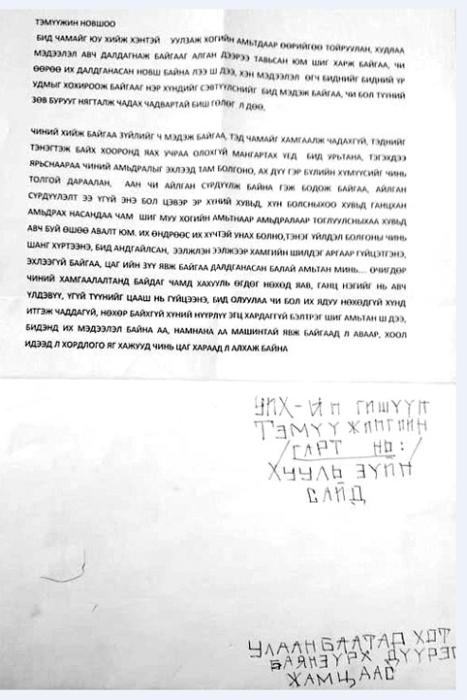 ТЭМҮҮЖИН НОВШОО
БИД ЧАМАЙГ ЮУ ХИЙЖ ХЭНТЭЙ УУЛЗАЖ ХОГИЙН АМЬТДААР ӨӨРИЙГӨӨ ТОЙРУУЛАН, ХУДЛАА
МЭДЭЭЛЭЛ АВЧ ДАЛДАГНАЖ БАЙГААГ АЛГАН ДЭЭРЭЭ ТАВЬСАН ЮМ ШИГ ХАРЖ БАЙГАА, ЧИ
ӨӨРӨӨ ИХ ДАЛДГАНАСАН НОВШ БАЙНА ЛЭЭ Ш ДЭЭ, ХЭН МЭДЭЭЛЭЛ ӨГЧ БИДНИЙГ БИДНИЙ ҮР
УДМЫГ ХОХИРООЖ БАЙГААГ НЭР ХҮНДИЙГ СЭВТҮҮЛСНИЙГ БИД МЭДЭЖ БАЙГАА, ЧИ БОЛ ТҮҮНИЙ
ЗӨВ БУРУУГ НЯГТАЛЖ ЧАДАХ ЧАДВАРТАЙ БИШ ГӨЛӨГ Л ДӨӨ.
ЧИНИЙ ХИЙЖ БАЙГАА ЗҮЙЛИЙГ Ч МЭДЭЖ БАЙГАА, ТЭД ЧАМАЙГ ХАМГААЛЖ ЧАДАХГҮЙ, ТЭДНИЙГ
ТЭНЭГТЭЖ БАЙХ ХООРОНД ЯАХ УЧРАА ОЛОХГҮЙ МАНГАРТАХ ҮЕД БИД УРЬТАНА, ТЭГЭХДЭЭ
ЯРЬСНААРАА ЧИНИЙ АМЬДРАЛЫГ ЭХЛЭЭД ТАМ БОЛГОНО, АХ ДҮҮ ГЭР БҮЛИЙН ХҮМҮҮСИЙГ ЧИНЬ
ТОЛГОЙ ДАРААЛАН, ААН ЧИ АЙЛГАН СҮРДҮҮЛЖ БАЙНА ГЭЖ БОДОЖ БАЙГАА, АЙЛГАН
СҮРДҮҮЛЭЛТ ЭЭ ҮГҮЙ ЭНЭ БОЛ ЦЭВЭР ЭР ХҮНИЙ ХУВЬД, ХҮН БОЛСНЫХОО ХУВЬД ГАНЦХАН
АМЬДРАХ НАСАНДАА ЧАМ ШИГ МУУ ХОГИЙ АМЬТНААР АМЬДРАЛААР ТОГЛУУЛСНЫХАА ХУВЬД
АВЧ БУЙ ӨШӨӨ АВАЛТ ЮМ. ИХ ӨНДРӨӨС ИХ ХҮЧТЭЙ УНАХ БОЛНО,ТЭНЭГ ҮЙЛДЭЛ БОЛГОНЫ ЧИНЬ
ШАНГ ХҮРТЭЭНЭ, БИД АНДГАЙЛСАН, ЭЭЛЖЛЭН ЭЭЛЖЭЭР ХАМГИЙН ШИЛДЭГ АРГААР ГҮЙЦЭТГЭНЭ,
ЭХЛЭЭГҮЙ БАЙГАА, ЦАГ ИЙН ЗҮҮ ЯВЖ БАЙГАА ДАЛДГАНАСАН БАЛАЙ АМЬТАН МИНЬ... ӨЧИГДӨР
ЧИНИЙ ХАМГААЛАЛТАНД БАЙДАГ ЧАМД ХАХУУЛЬ ӨГДӨГ НӨХӨД ЯАВ, ГАНЦ НЭГИЙГ НЬ АВЧ
ҮЛДЭВҮҮ, ҮГҮЙ ТҮҮНИЙГ ЦААШ НЬ ГҮЙЦЭЭНЭ, БИД ОЛУУЛАА ЧИ БОЛ ИХ ЯДУУ НӨХӨДГҮЙ ХҮНД
ИТГЭЖ ЧАДДАГГҮЙ, НӨХӨР БАЙХГҮЙ ХҮНИЙ НҮҮРЛҮҮ ЭГЦ ХАРДАГГҮЙ БЭЛТРЭГ ШИГ АМЬТАН Ш ДЭЭ,
БИДЭНД ИХ МЭДЭЭЛЭЛ БАЙНА АА, НАМНАНА АА МАШИНТАЙ ЯВЖ БАЙГААД Л АВААР, ХООЛ
ИДЭЭД Л ХОРДЛОГО ЯГ ХАЖУУД ЧИНЬ ЦАГ ХАРААД Л АЛХАЖ БАЙНА
УИХ-ЫН ГИШҮҮН
ТЭМҮҮЖИНГИЙН
/ГАРТ НЬ:/
ХУУЛЬ ЗҮЙН
САЙД
УЛААНБААТАР ХОТ
БАЯНЗҮРХ ДҮҮРЭГ
ЖАМЦААС